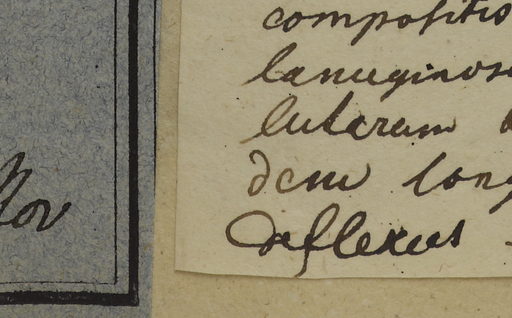 compositis
lanuginos
luteram
dem long
reflexus